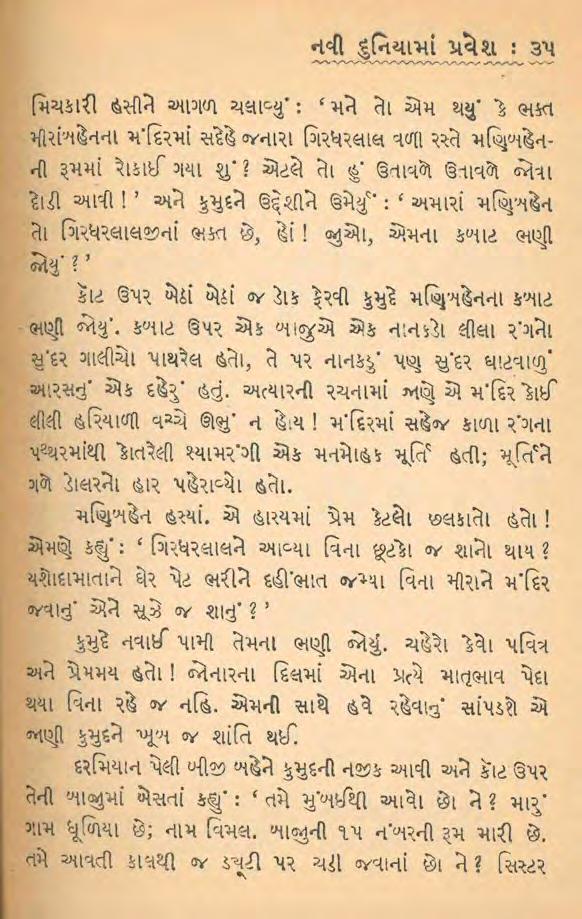 નવી દુનિયામાં પ્રવેશ : ૩૫
મિચકારી હસીને આગળ ચલાવ્યું : ‘ મને તો એમ થયું કે ભક્ત
મીરાંબહેનના મંદિરમાં સદેહે જનારા ગિરધરલાલ વળી રસ્તે મણિબહેન-
ની રૂમમાં રોકાઈ ગયા શું ? એટલે તો હું ઉતાવળે ઉતાવળે જોવા
દોડી આવી ! ’ અને કુમુદને ઉદ્દેશીને ઉમેર્યું : ‘ અમારાં મણિબહેન
તો ગિરધરલાલજીનાં ભક્ત છે, હોં ! જુઓ, એમના કબાટ ભણી
જોયું ? ’
કૉટ ઉપર બેઠાં બેઠાં જ ડોક ફેરવી કુમુદે મણિબહેનના કબાટ
ભણી જોયું. કબાટ ઉપર એક બાજુએ એક નાનકડો લીલા રંગનો
સુંદર ગાલીચો પાથરેલ હતો, તે પર નાનકડું પણ સુંદર ઘાટવાળું
આરસનું એક દહેરું હતું. અત્યારની રચનામાં જાણે એ મંદિર કોઈ
લીલી હરિયાળી વચ્ચે ઊભું ન હોય ! મંદિરમાં સહેજ કાળા રંગના
પથ્થરમાંથી કોતરેલી શ્યામરંગી એક મનમોહક મૂર્તિ હતી; મૂર્તિને
ગળે ડોલરનો હાર પહેરાવ્યો હતો.
મણિબહેન હસ્યાં. એ હાસ્યમાં પ્રેમ કેટલો છલકાતો હતો !
એમણે કહ્યું : ‘ ગિરધરલાલને આવ્યા વિના છૂટકો જ શાનો થાય ?
યશોદામાતાને ઘેર પેટ ભરીને દહીંભાત જમ્યા વિના મીરાને મંદિર
જવાનું એને સૂઝે જ શાનું ? ’
કુમુદે નવાઈ પામી તેમના ભણી જોયું. ચહેરો કેવો પવિત્ર
અને પ્રેમમય હતો ! જોનારના દિલમાં એના પ્રત્યે માતૃભાવ પેદા
થયા વિના રહે જ નહિ. એમની સાથે હવે રહેવાનું સાંપડશે એ
જાણી કુમુદને ખૂબ જ શાંતિ થઈ.
દરમિયાન પેલી બીજી બહેને કુમુદની નજીક આવી અને કૉટ ઉપર
તેની બાજુમાં બેસતાં કહ્યું : ‘ તમે મુંબઈથી આવો છો ને ? મારું
ગામ ધૂળિયા છે; નામ વિમલ. બાજુની ૧૫ નંબરની રૂમ મારી છે.
તમે આવતી કાલથી જ ડ્યૂટી પર ચડી જવાનાં છો ને ? સિસ્ટર